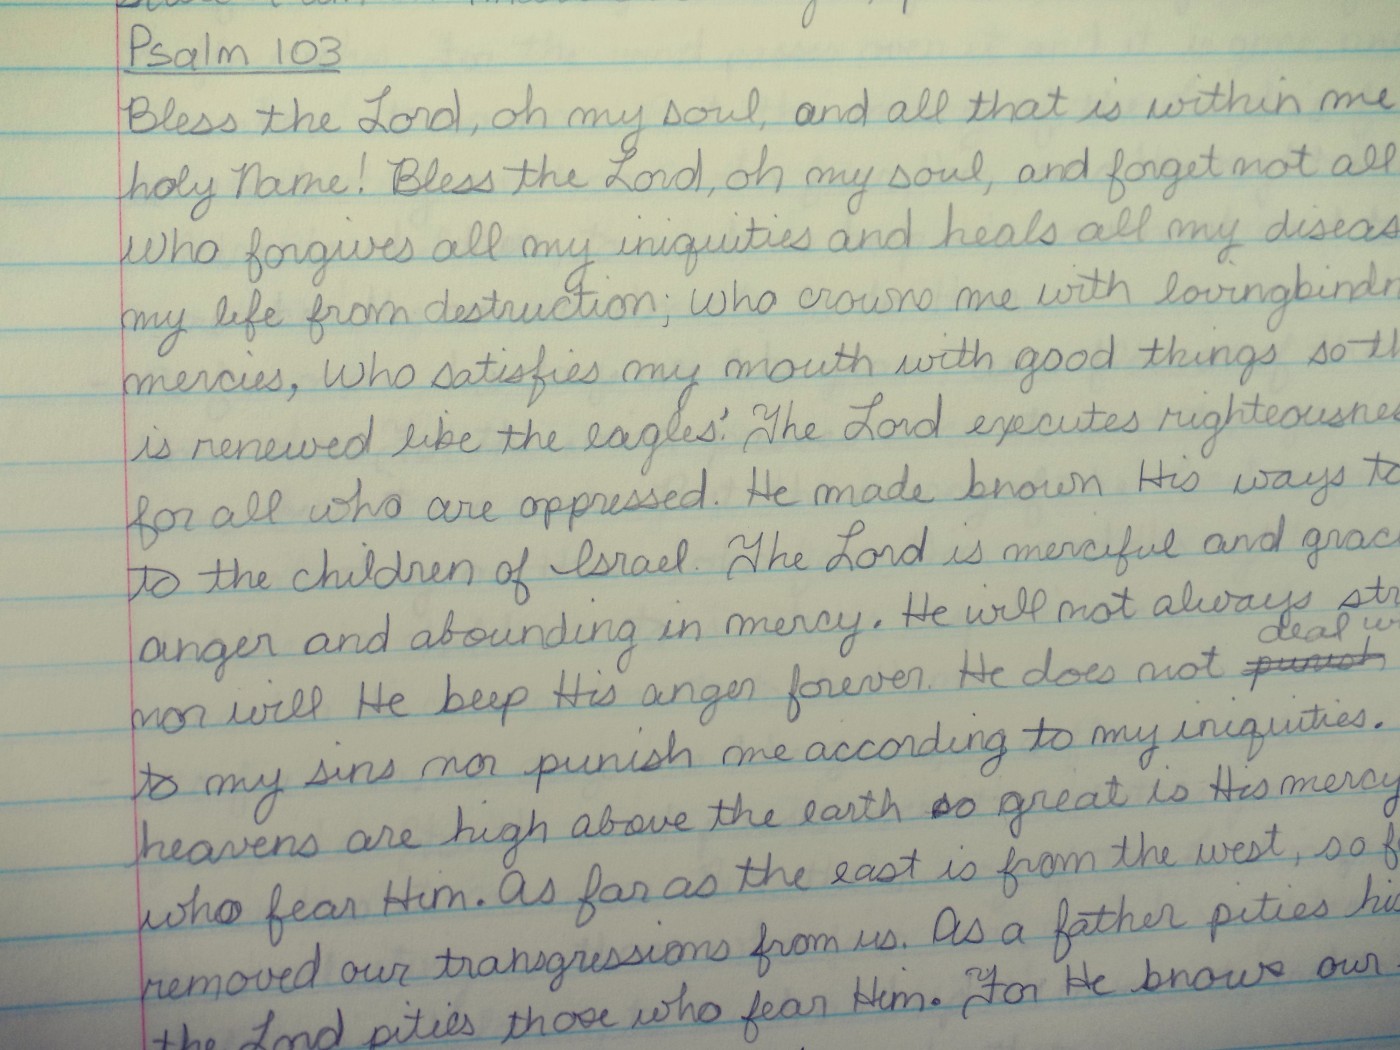 Psalm 103
Bless the Lord, oh my soul, and all that is within me
holy Name! Bless the Lord, oh my soul, and forget not all
Who forgives all my iniquities and heals all my diseas
my life from destruction; Who crowns me with lovingkindn
mercies, Who satisfies my mouth with good things so th
is renewed like the eagles'. The Lord executes righteousnes
for all who are oppressed. He made known His ways to
to the children of Israel. The Lord is merciful and grac
anger and abounding in mercy. He will not always str
deal wi
nor will He keep His anger forever. He does not punish
to my sins nor punish me according to my iniquities.
heavens are high above the earth so great is His mercy
who fear Him. As far as the east is from the west, so f
removed our transgressions from us. As a father pities his
the Lord pities those who fear Him. For He knows our